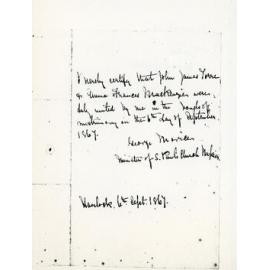 I hereby certify that John James Torre
& Emma Frances Brackenizer were
duly united by me in the bonds of
matrimony on the 6th day of September
1867.
George Morris
Minister of S. Pauls Church
6th Sept. 1867.